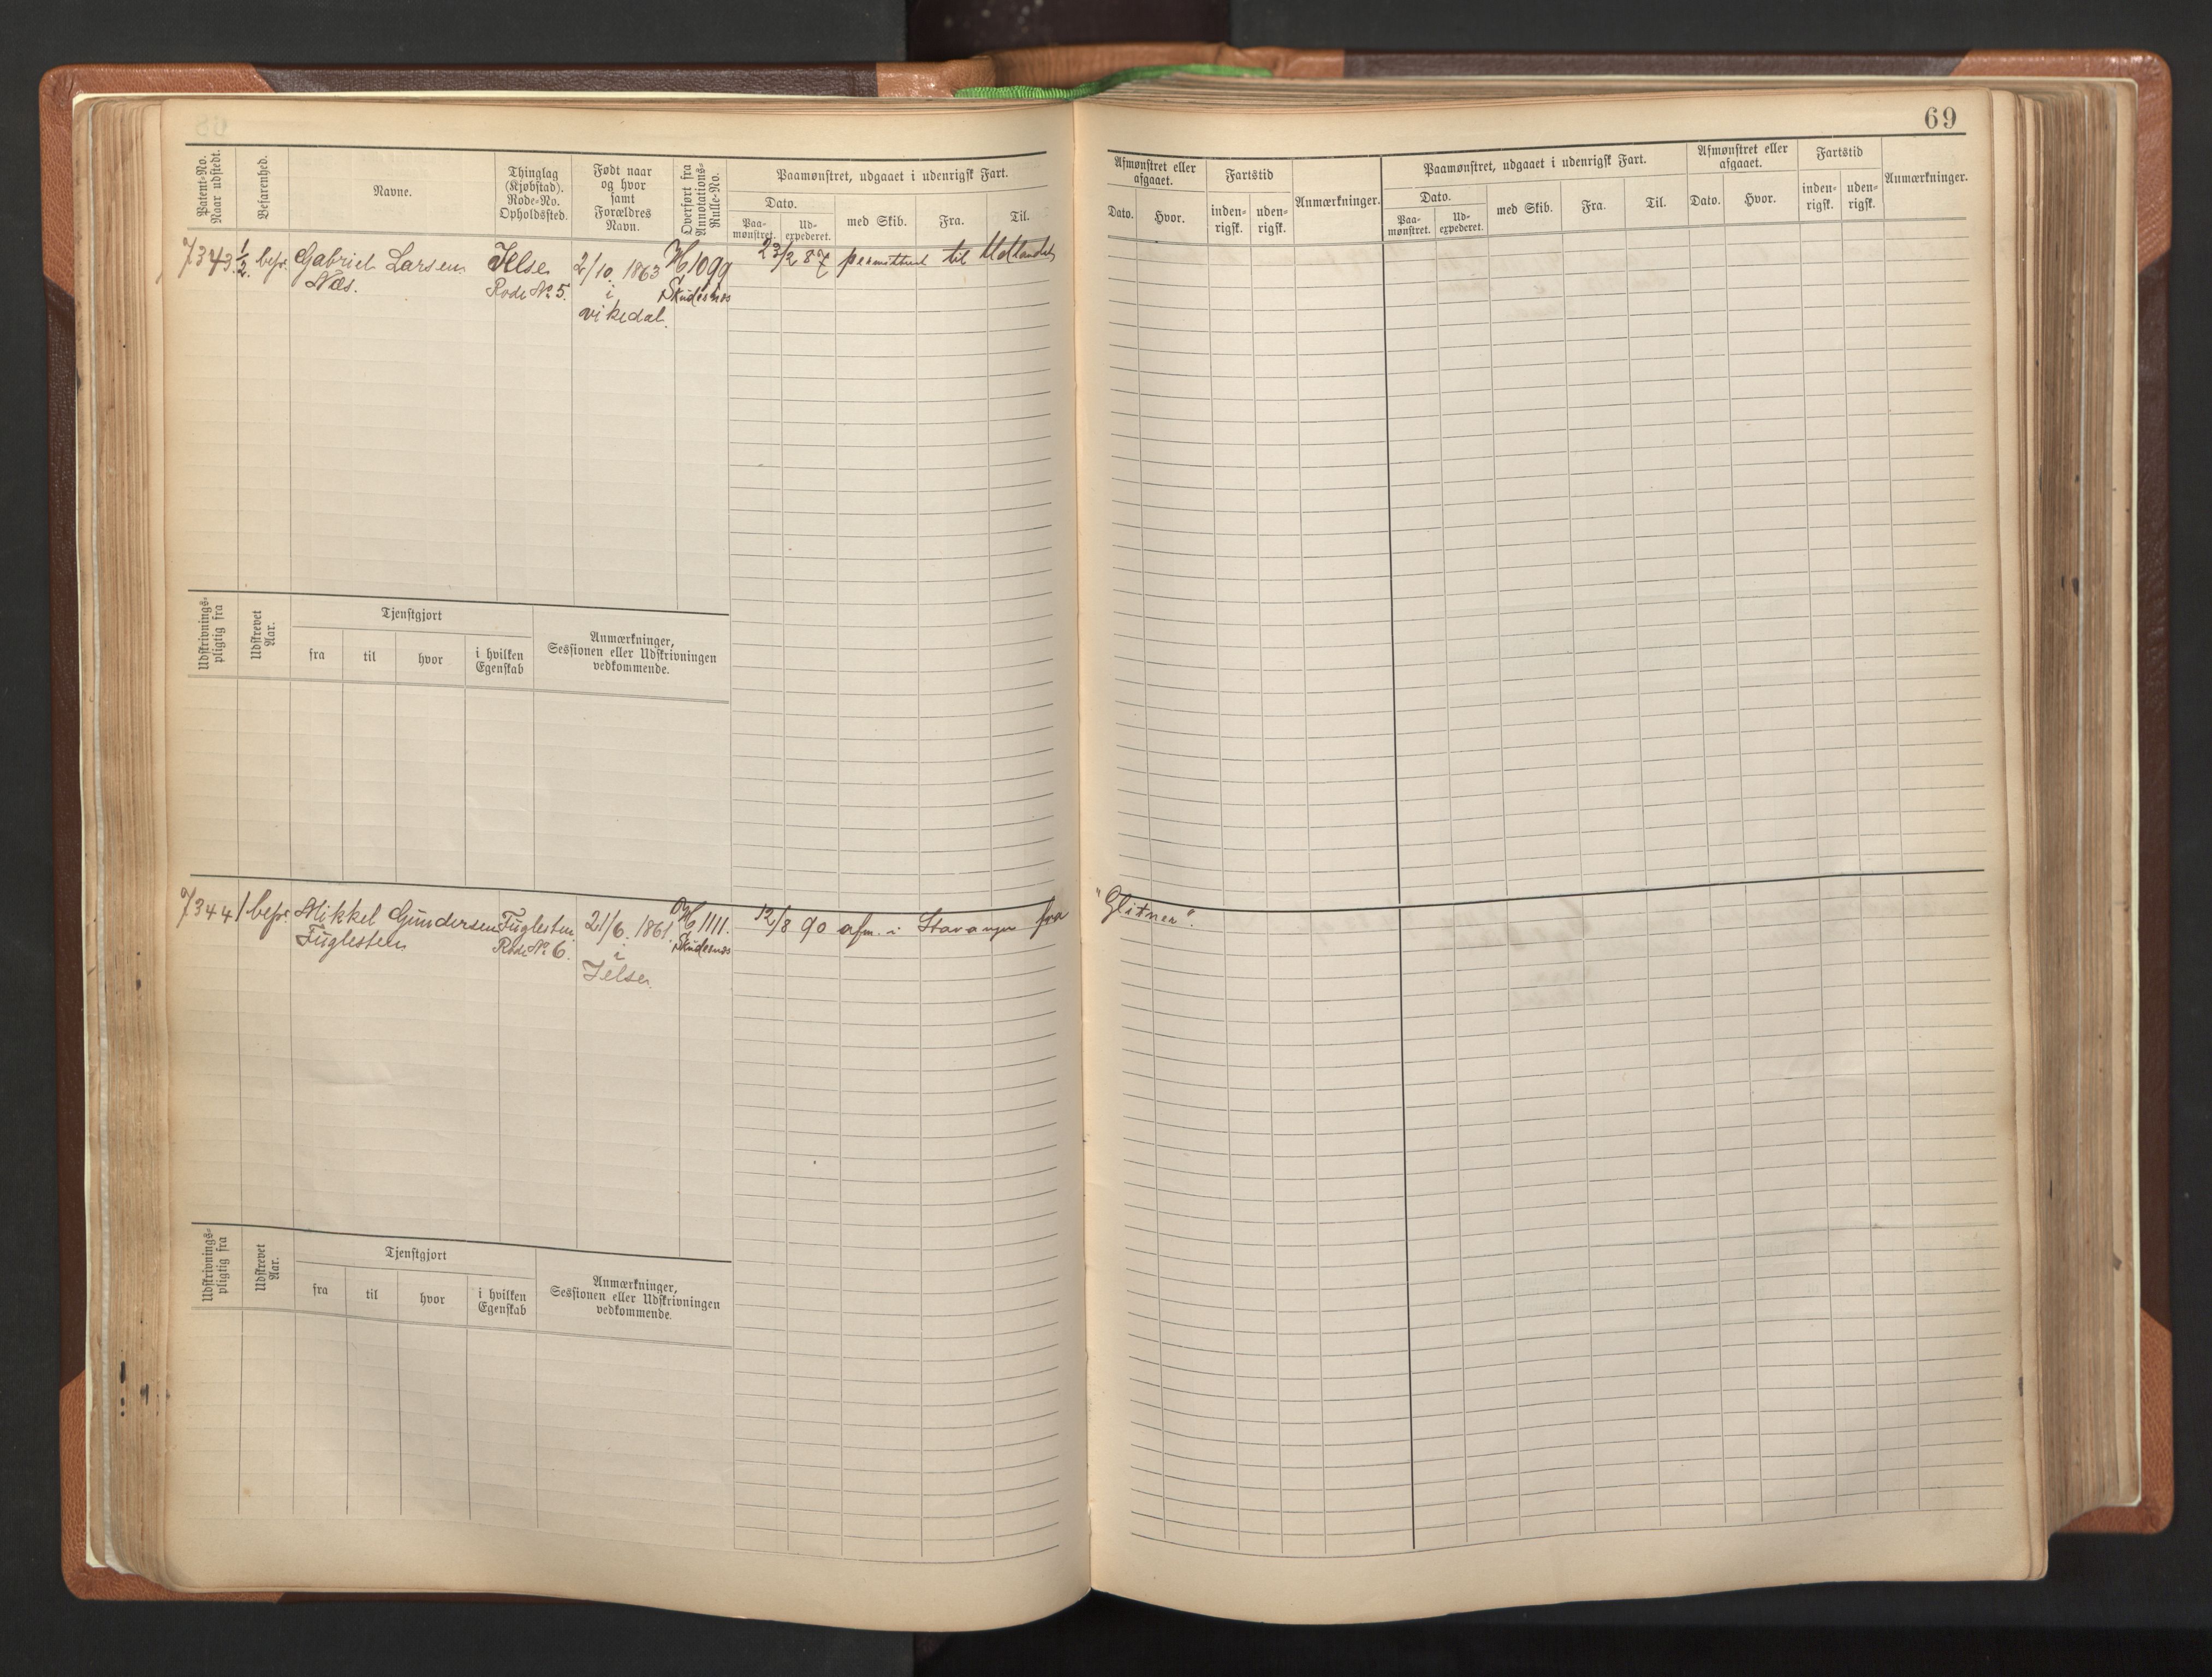 69
Patent-No.
Naar udstedt.
Befarenhed.
Navne.
Thinglag
(Kjøbstad).
Rode-No.
Opholdssted.
Født naar
og hvor
samt
Forældres
Navn.
Overført fra
Annotations-
Rulle-No.
Paamønstret, udgaaet i udenrigsk Fart.
Dato.
Paa-
mønstret.
Ud-
expederet.
med Skib.
Fra.
Til.
Afmønstret eller
afgaaet.
Dato.
Hvor.
Fartstid
inden-
rigsk.
uden-
rigsk.
Anmærkninger.
Paamønstret, udgaaet i udenrigsk Fart.
Dato.
Paa-
mønstret.
Ud-
expederet.
med Skib.
Fra.
Til.
Afmønstret eller
afgaaet.
Dato.
Hvor.
Fartstid
inden-
rigsk.
uden-
rigsk.
Anmærkninger.
7343 1/2 befr. Gabriel Larsen Jelse 2/10 1863 H 1099 23/2 87 permitteret til Udlandet
Næs. Rode No 5. i Skudesnæs
vikedal.
Udskrivnings-
pligtig fra
Udskrevet
Aar.
Tjenstgjort
fra
til
hvor
i hvilken
Egenskab
Anmærkninger,
Sessionen eller Udskrivningen
vedkommende.
7344 1 befr. Mikkel Gundersen Fuglesten 21/6 1861. H 1111. 12/8 90 afm. i Stavanger fra "Glitner".
Fuglesten Rode No 6. i Skudesnæs
Jelse
Udskrivnings-
pligtig fra
Udskrevet
Aar.
Tjenstgjort
fra
til
hvor
i hvilken
Egenskab
Anmærkninger,
Sessionen eller Udskrivningen
vedkommende.